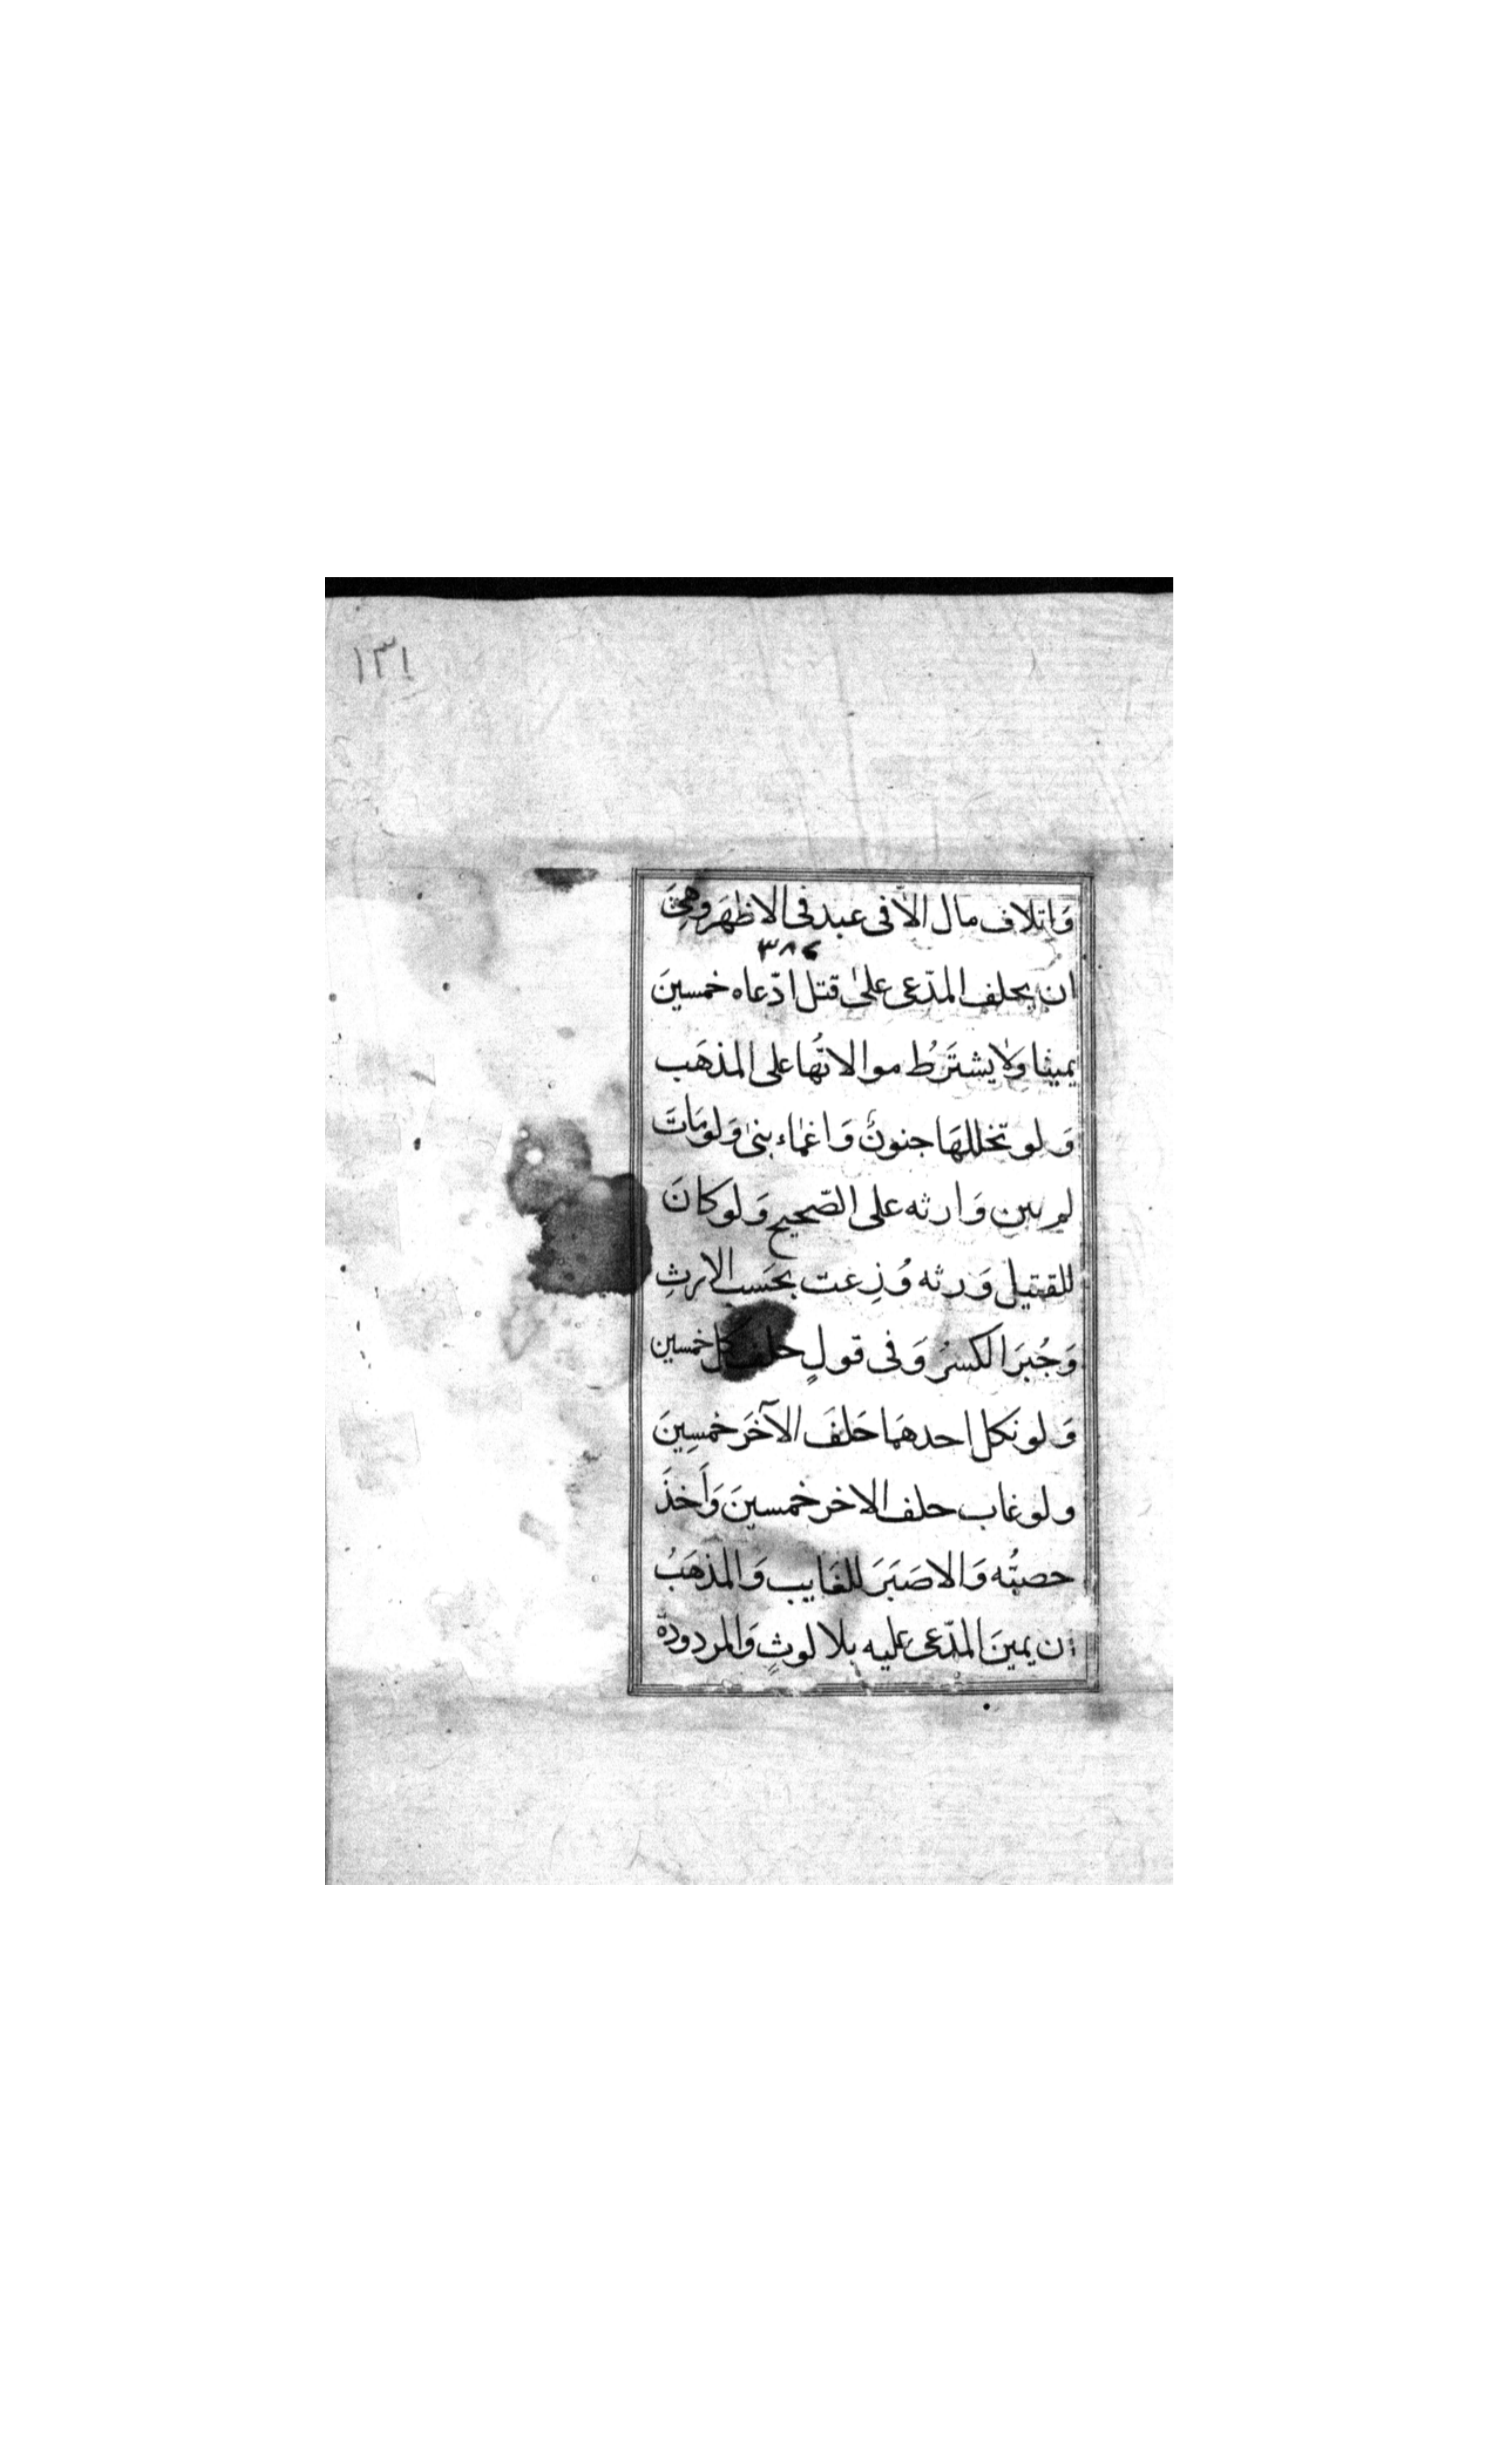 ١٣١
وَاتلاف مال الّا فى عبد فى الاظهَر وهِىَ
٣٨٤
ان يحلف المدّعى على قتل ادّعاه خمسينَ
يمينا وَلا يشترَطُ موالاتُها على المذهَب
وَلو تخللهَا جنونٌ وَاغماء بنى وَلو مَاتَ
لم يبن وَارثه على الصّحيح وَلو كانَ
للقتيل وَرثه وُزِعت بحَسب الارثِ
وَجُبرَ الكسرُ وَفى قولٍ حلف كل خمسين
وَلو نَكل احدهمَا حَلفَ الآخَر خمسِينَ
ولو غاب حلف الاخر خمسينَ وَأَخذَ
حصتُه وَالا صَبَرَ للغَايب وَالمذهَبُ
ان يمينَ المدّعى عليه بلا لوثٍ وَالمردودة